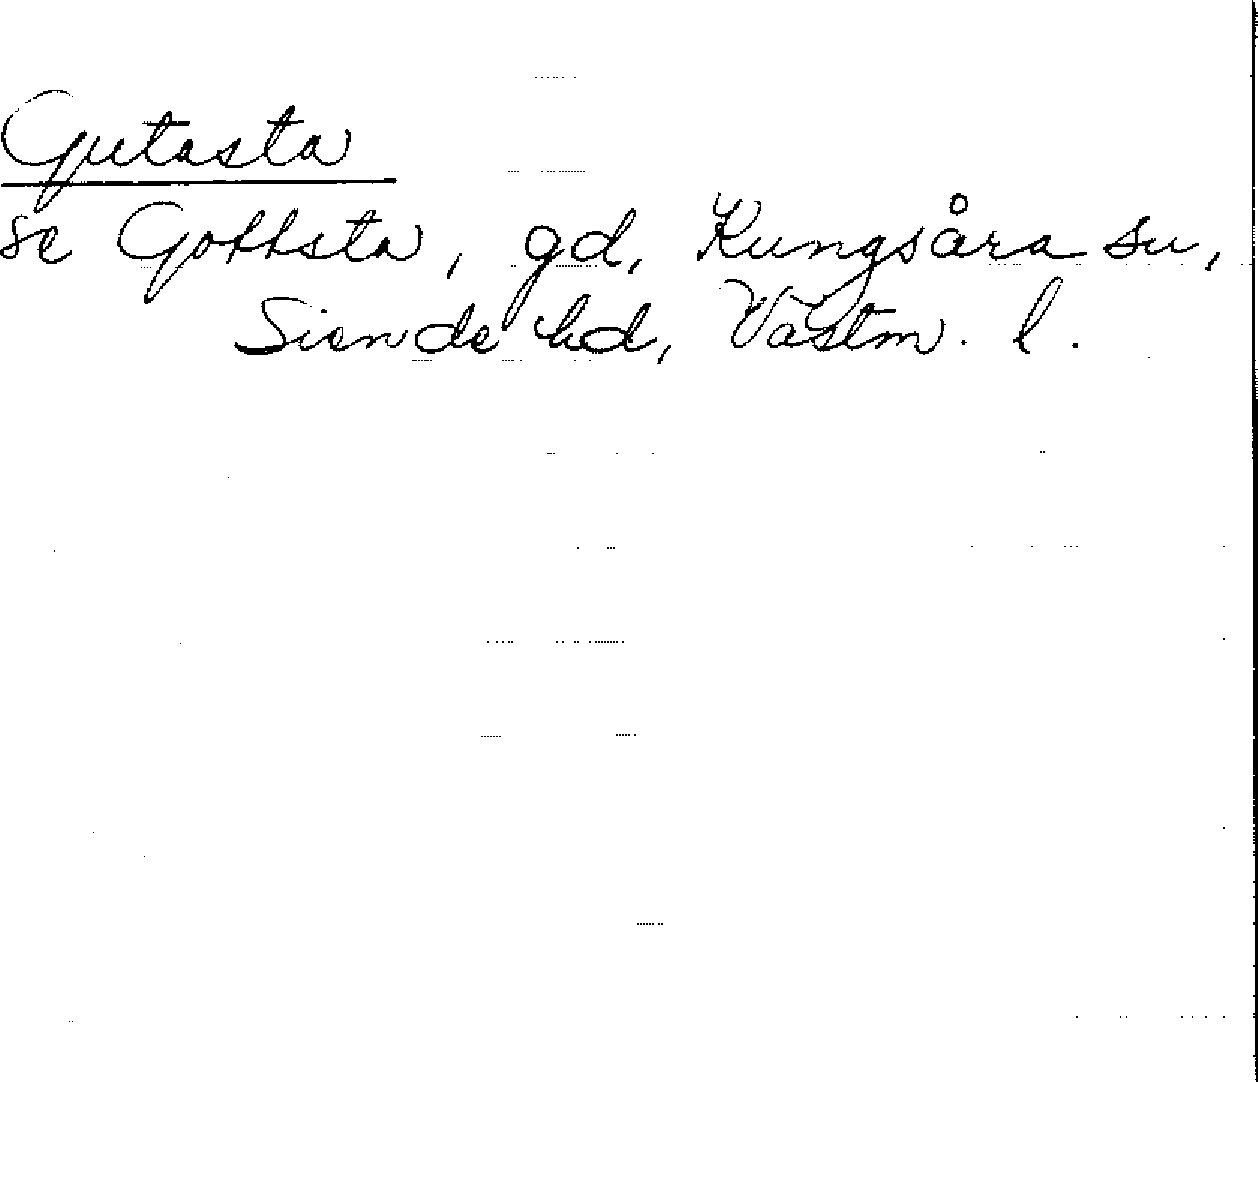 Gutasta
se Gottsta, gd, Kungsåra sn,
Siende hd, Västm. l.